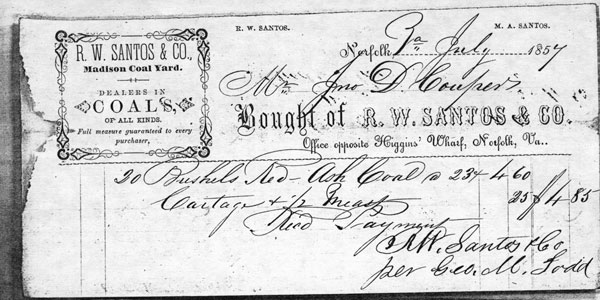 R. W. SANTOS. M. A. SANTOS.
R. W. SANTOS & CO.,
Madison Coal Yard.
DEALERS IN
COALS,
OF ALL KINDS.
Full measure guaranteed to every
purchaser,
Norfolk Va July 1857
Mr Jno D Couper
Bought of R. W. SANTOS & CO.
Office opposite Higgins' Wharf, Norfolk, Va..
20 Bushels Red-Ash Coal @ 23 4 60
Cartage + 1/2 Meas 25 $ 4 85
Recd Payment
R.W. Santos & Co
per Geo. M. Todd